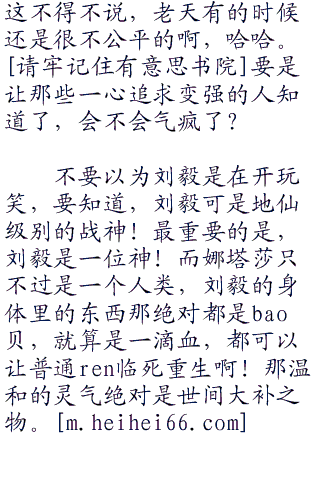 这不得不说，老天有的时候
还是很不公平的啊，哈哈。
[请牢记住有意思书院]要是
让那些一心追求变强的人知
道了，会不会气疯了？
不要以为刘毅是在开玩
笑，要知道，刘毅可是地仙
级别的战神！最重要的是，
刘毅是一位神！而娜塔莎只
不过是一个人类，刘毅的身
体里的东西那绝对都是bao
贝，就算是一滴血，都可以
让普通ren临死重生啊！那温
和的灵气绝对是世间大补之
物。[m.heihei66.com]